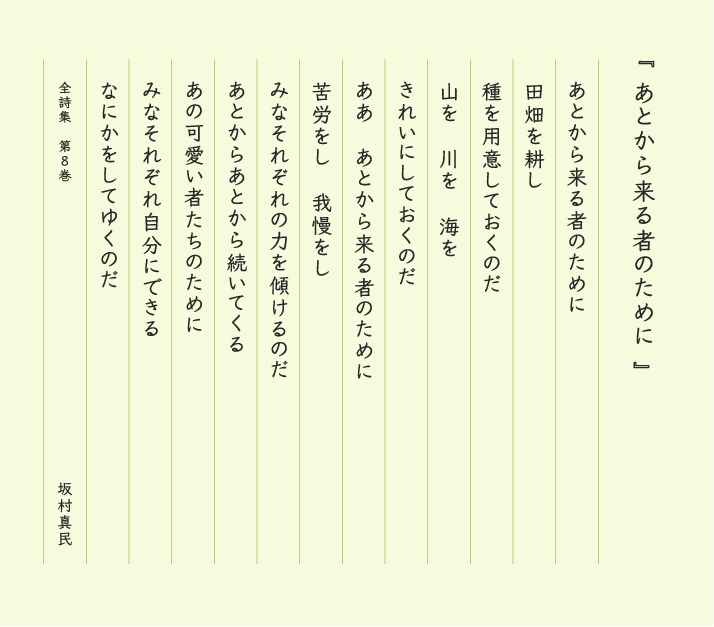 『あとから来る者のために』
あとから来る者のために
田畑を耕し
種を用意しておくのだ
山を　川を　海を
きれいにしておくのだ
ああ　あとから来る者のために
苦労をし　我慢をし
みなそれぞれの力を傾けるのだ
あとからあとから続いてくる
あの可愛い者たちのために
みなそれぞれ自分にできる
なにかをしてゆくのだ
全詩集　第8巻　坂村真民